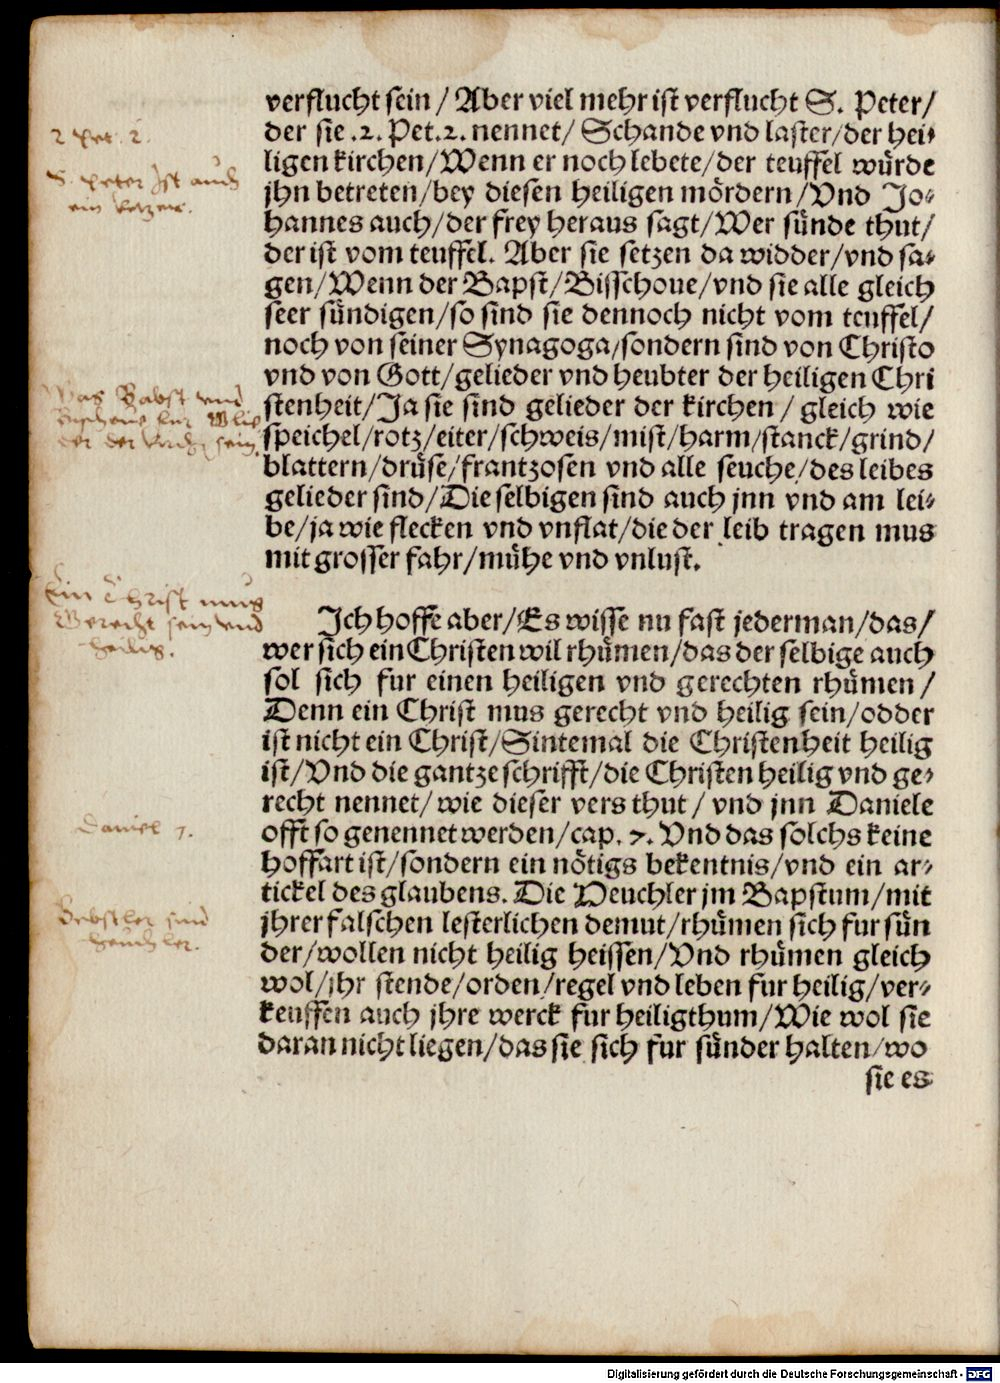 verflucht sein / Aber viel mehr ist verflucht S. Peter/
der sie .2. Pet.2. nennet/ Schande vnd laster/der hei⸗
ligen kirchen/Wenn er noch lebete/der teuffel wuͤrde
jhn betreten/bey diesen heiligen moͤrdern/Vnd Jo⸗
hannes auch/der frey heraus sagt/Wer suͤnde thut/
der ist vom teuffel. Aber sie setzen da widder/vnd sa⸗
gen/Wenn der Bapst/Bisschoue/vnd sie alle gleich
seer suͤndigen/so sind sie dennoch nicht vom teuffel/
noch von seiner Synagoga/sondern sind von Christo
vnd von Gott/gelieder vnd heubter der heiligen Chri
stenheit/Ja sie sind gelieder der kirchen / gleich wie
speichel/rotz/eiter/schweis/mist/harm/stanck/grind/
blattern/druͤse/frantzosen vnd alle seuche/des leibes
gelieder sind/Die selbigen sind auch jnn vnd am lei⸗
be/ja wie flecken vnd vnflat/die der leib tragen mus
mit grosser fahr/muͤhe vnd vnlust.
Jch hoffe aber/Es wisse nu fast jederman/das/
wer sich ein Christen wil rhuͤmen/das der selbige auch
sol sich fur einen heiligen vnd gerechten rhuͤmen/
Denn ein Christ mus gerecht vnd heilig sein/odder
ist nicht ein Christ/Sintemal die Christenheit heilig
ist/Vnd die gantze schrifft/die Christen heilig vnd ge⸗
recht nennet/wie dieser vers thut / vnd jnn Daniele
offt so genennet werden/cap. 7. Vnd das solchs keine
hoffart ist/sondern ein noͤtigs bekentnis/vnd ein ar⸗
tickel des glaubens. Die Heuchler jm Bapstum/mit
jhrer falschen lesterlichen demut/rhuͤmen sich fur suͤn
der/wollen nicht heilig heissen/Vnd rhuͤmen gleich
wol/jhr stende/orden/regel vnd leben fur heilig/ver⸗
keuffen auch jhre werck fur heiligthum/Wie wol sie
daran nicht liegen/das sie sich fur suͤnder halten/wo
sie es
2 Pet. 2.
S. Peter Ist auch
ein ketzer.
Was Babst vnd
der der kirchen sein.
Ein Christ mus
Gerecht sein vnd
heilig.
Daniel 7.
Bebstler sind
heuchler.
Digitalisierung gefördert durch die Deutsche Forschungsgemeinschaft - DFG